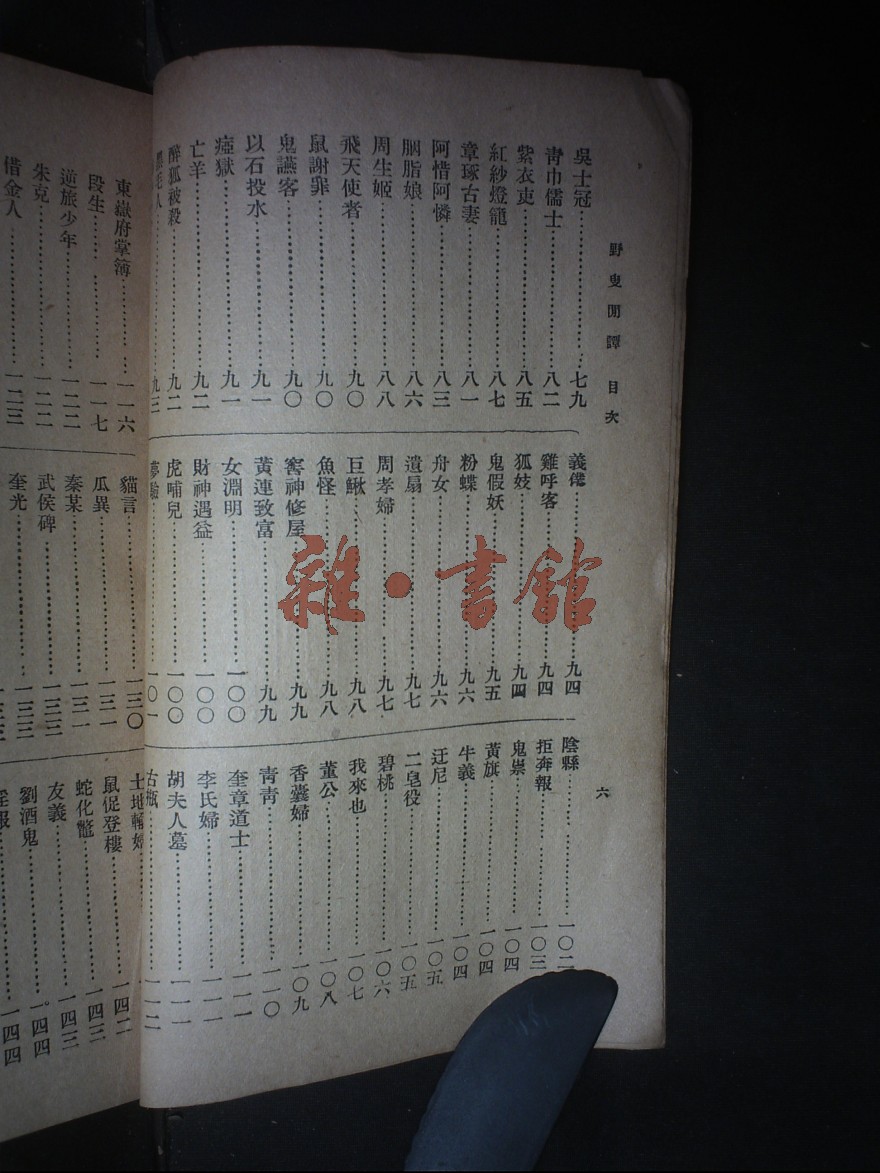 野叟閒譚 目次
六
吳士冠 七九
青巾儒士 八二
紫衣吏 八五
紅紗燈籠 八七
章琢古妻 八一
阿惜阿憐 八三
胭脂娘 八六
周生姬 八八
飛天使者 九〇
鼠謝罪 九〇
鬼讌客 九〇
以石投水 九一
瘞獄 九一
亡羊 九二
醉狐被殺 九二
毛人 九三
義僕 九四
雞呼客 九四
狐妓 九四
鬼假妖 九五
粉蝶 九六
舟女 九六
遺扇 九七
周孝婦 九七
巨鰍 九八
魚怪 九八
窖神修屋 九九
黃連致富 九九
女淵明 一〇〇
財神遇益 一〇〇
虎哺兒 一〇〇
夢驗 一〇一
陰縣 一〇二
拒奔報 一〇三
鬼祟 一〇四
黃旗 一〇四
牛義 一〇四
迂尼 一〇五
二皂役 一〇五
碧桃 一〇六
我來也 一〇七
董公 一〇八
香囊婦 一〇九
青青 一一〇
奎章道士 一一一
李氏婦 一一一
胡夫人墓 一一一
古瓶 一一二
東嶽府掌簿 一一六
段生 一一七
逆旅少年 一二二
朱克 一二二
借金人 一二三
貓言 一三〇
瓜異 一三一
秦某 一三一
武侯碑 一三三
奎光 一三三
土地
鼠促登樓 一四二
蛇化鼈 一四三
友義 一四三
劉酒鬼 一四四
報 一四四
雜·書館